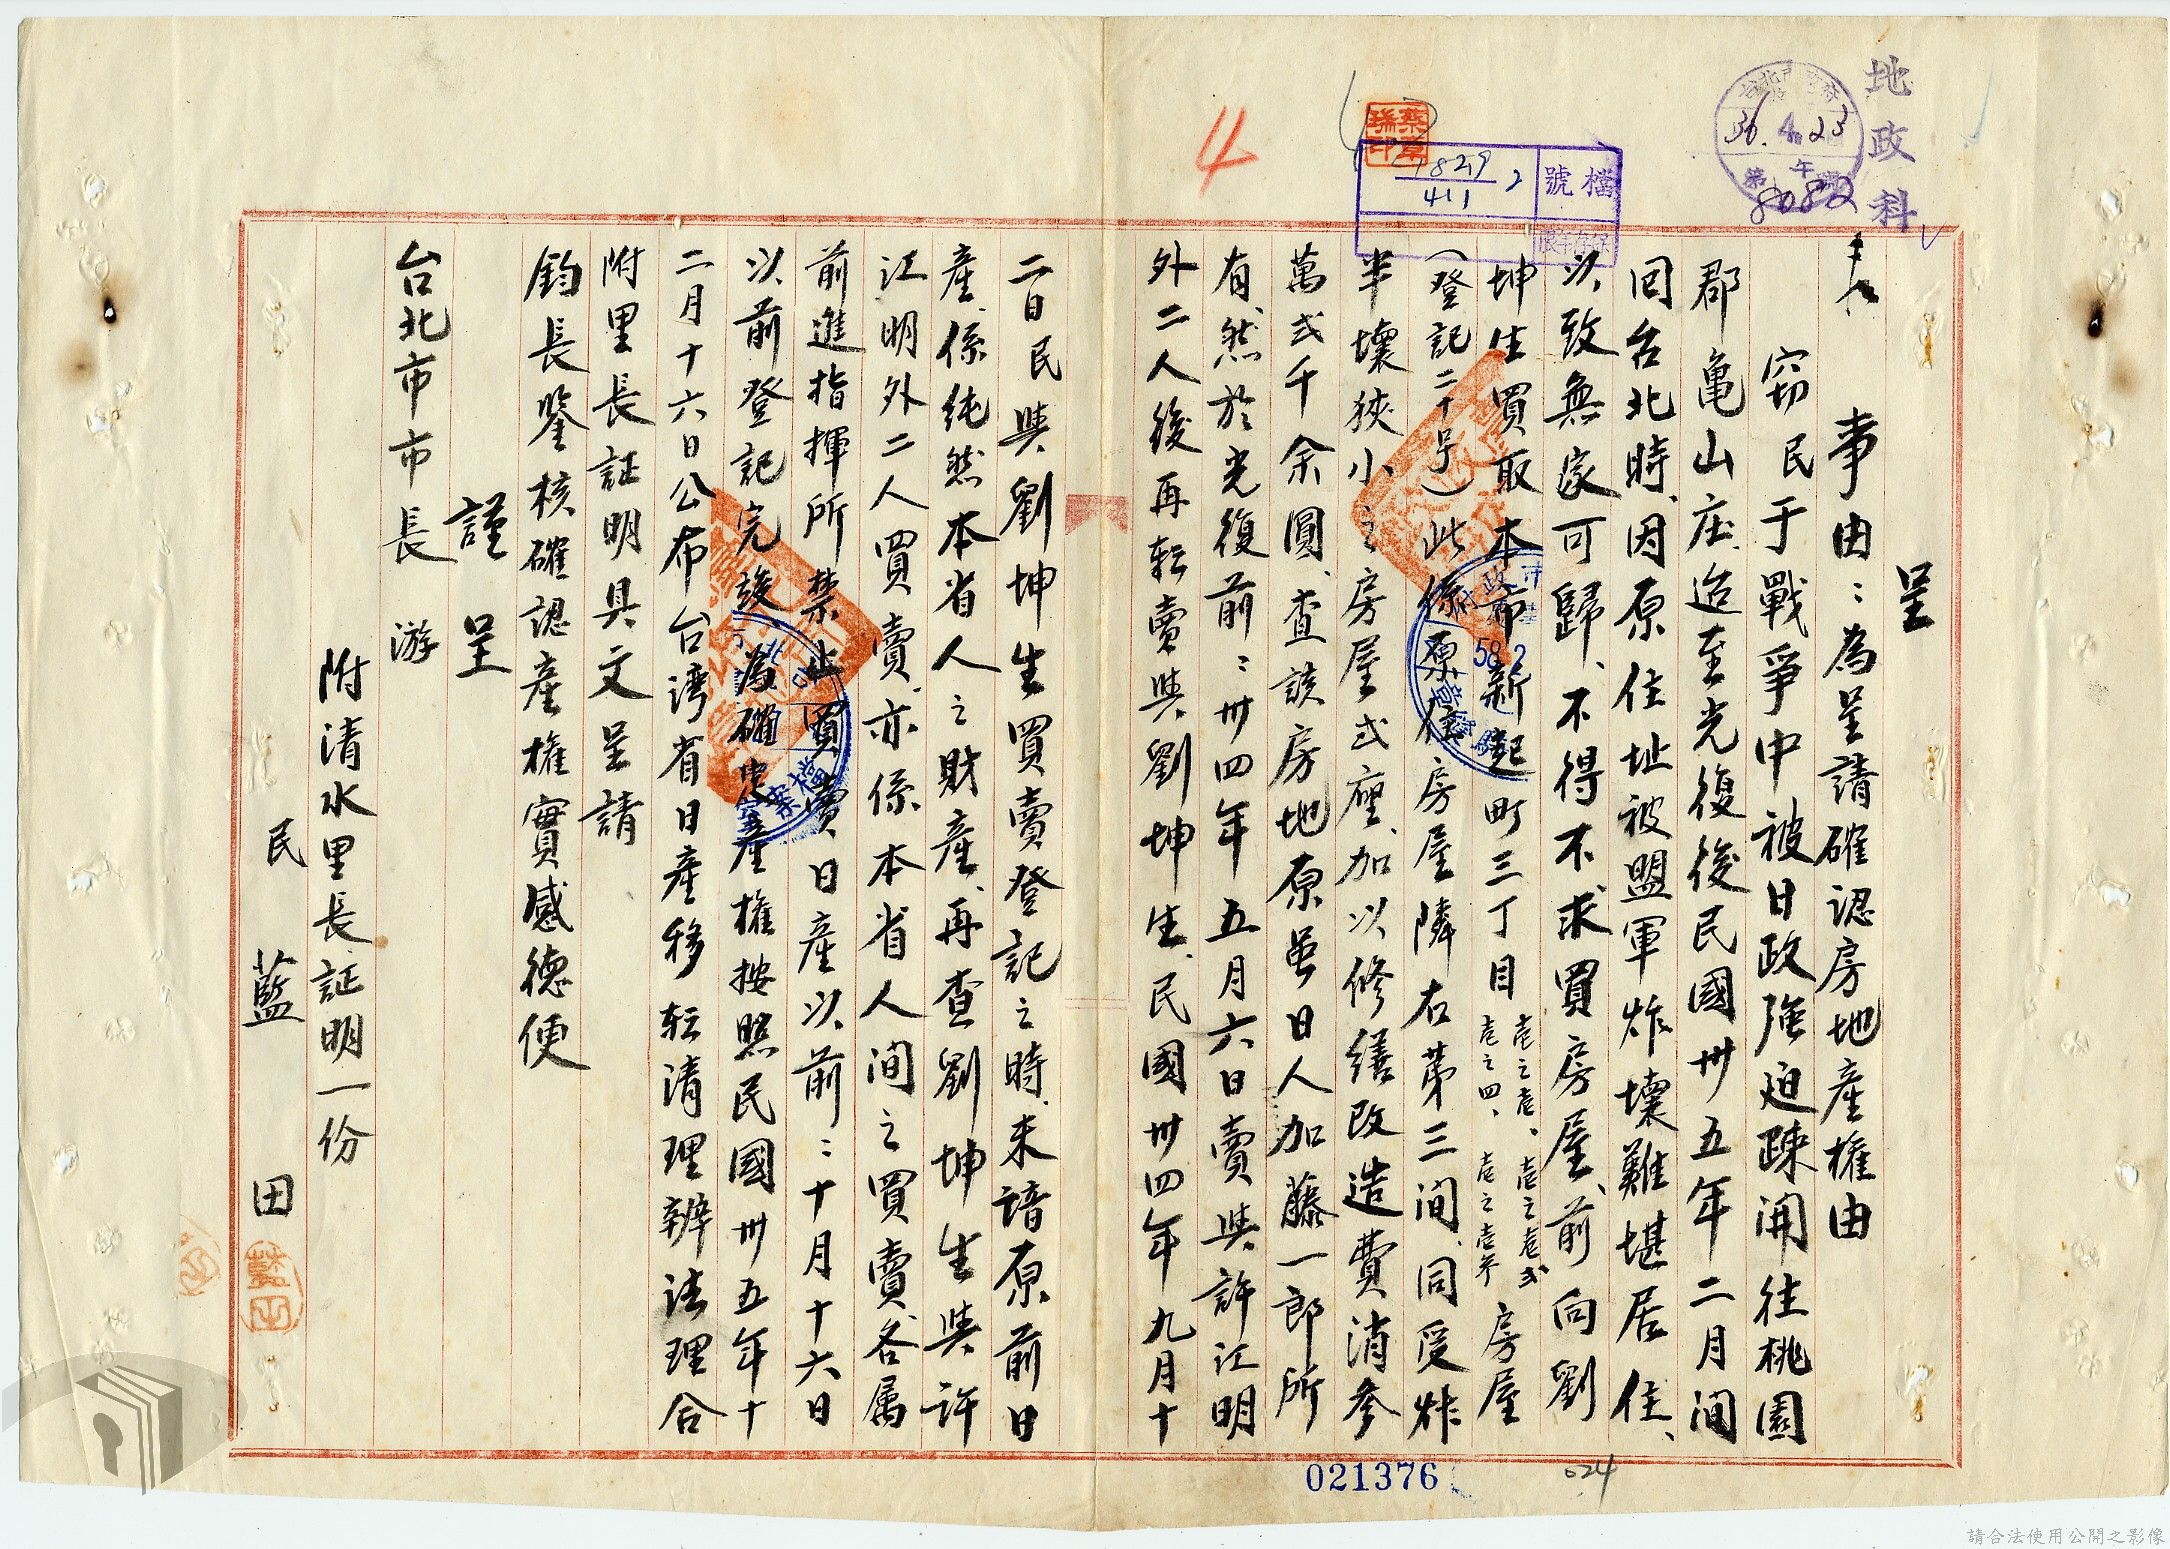 地政科
36.4.23
8082
檔號
1829
411
2
保存年限
蔡章瑞印
4
呈
事由：為呈請確認房地產權由
窃民于戰爭中被日政强迫疎開往桃園
郡亀山庄、迨至光復後民國卅五年二月间
回台北時、因原住址被盟軍炸壞難堪居住、
以致無家可歸、不得不求買房屋、前向劉
坤生買取本市新起町三丁目壱之壱、壱之壱弍壱之四、壱之壱房屋
（登記二十号）此係原住房屋隣右苐三间、同受炸
半壞狹小之房屋弍座、加以修繕改造費消参
萬弍千余圓、查該房地原、為日人加藤一郎所
有、然於光復前：卅四年五月六日賣與許江明
外二人後再転賣與劉坤生、民國卅四年九月十
二日民與劉坤生買賣登記之時、未諳原前日
產、係純然本省人之財產、再查劉坤生與許
江明外二人買賣、亦係本省人间之買賣、各属
前進指揮所禁止買賣日產以前：十月十六日
以前登記完竣、為確定產權按照民國卅五年十
二月十六日公布台湾省日產移転清理辦法理合
附里長証明具文呈請
鈞長鑒核確認產權實感德便
謹呈
台北市市長 游
附清水里長証明一份
民 藍 田
021376
024
請合法使用公開之影像